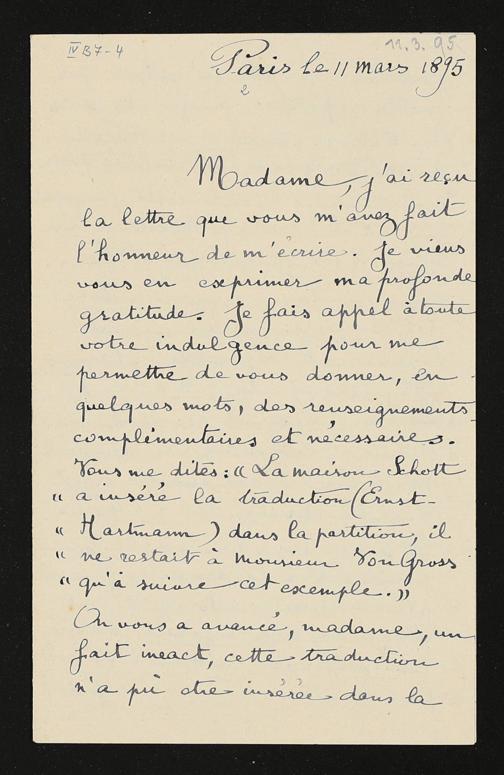 IV B7-4
11.3.95
Paris le 11 mars 1895
2
Madame, j'ai reçu
la lettre que vous m'avez fait
l'honneur de m'écrire. Je viens
vous en exprimer ma profonde
gratitude. Je fais appel à toute
votre indulgence pour me
permettre de vous donner, en
quelques mots, des renseignements
complémentaires et nécessaires.
Vous me dites: "La maison Schott
" a inséré la traduction (Ernst-
" Hartmann) dans la partition, il
" ne restait à monsieur Von Gross
" qu'à suivre cet exemple."
On vous a avancé, madame, un
fait ineact, cette traduction
n'a pû être insérée dans la